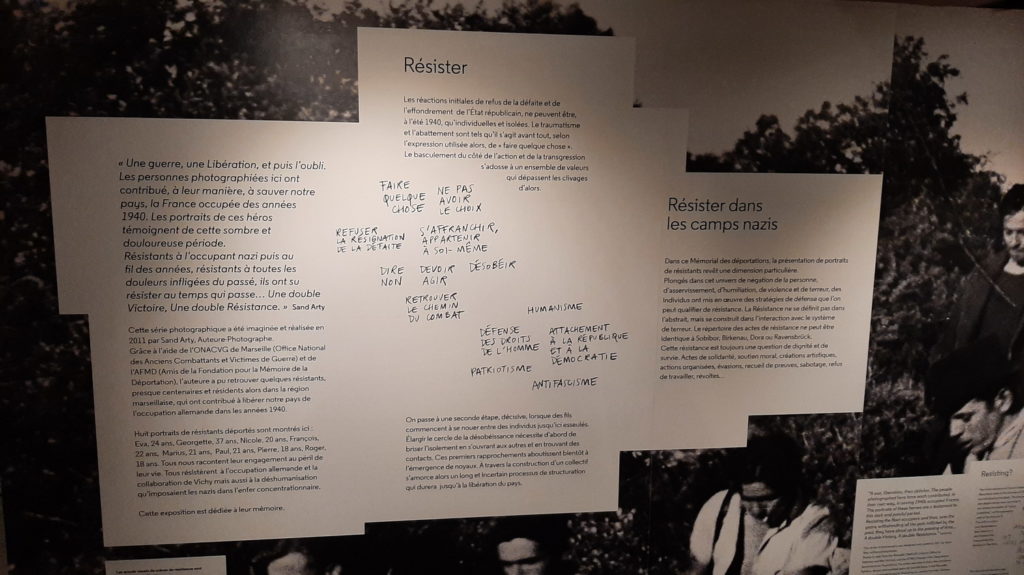 « Une guerre, une Libération, et puis l'oubli.
Les personnes photographiées ici ont
contribué, à leur manière, à sauver notre
pays, la France occupée des années
1940. Les portraits de ces héros
témoignent de cette sombre et
douloureuse période.
Résistants à l'occupant nazi puis au
fil des années, résistants à toutes les
douleurs infligées du passé, ils ont su
résister au temps qui passe... Une double
Victoire, Une double Résistance. » Sand Arty
Cette série photographique a été imaginée et réalisée en
2011 par Sand Arty, Auteure-Photographe.
Grâce à l'aide de l'ONACVG de Marseille (Office National
des Anciens Combattants et Victimes de Guerre) et de
l'AFMD (Amis de la Fondation pour la Mémoire de la
Déportation), l'auteure a pu retrouver quelques résistants,
presque centenaires et résidents alors dans la région
marseillaise, qui ont contribué à libérer notre pays de
l'occupation allemande dans les années 1940.
Huit portraits de résistants déportés sont montrés ici :
Eva, 24 ans, Georgette, 37 ans, Nicole, 20 ans, François,
22 ans, Marius, 21 ans, Paul, 21 ans, Pierre, 18 ans, Roger,
18 ans. Tous nous racontent leur engagement au péril de
leur vie. Tous résistèrent à l'occupation allemande et la
collaboration de Vichy mais aussi à la déshumanisation
qu'imposaient les nazis dans l'enfer concentrationnaire.
Cette exposition est dédiée à leur mémoire.
Résister
Les réactions initiales de refus de la défaite et de
l'effondrement de l'État républicain, ne peuvent être,
à l'été 1940, qu'individuelles et isolées. Le traumatisme
et l'abattement sont tels qu'il s'agit avant tout, selon
l'expression utilisée alors, de « faire quelque chose ».
Le basculement du côté de l'action et de la transgression
s'adosse à un ensemble de valeurs
qui dépassent les clivages
d'alors.
FAIRE
QUELQUE
CHOSE
NE PAS
AVOIR
LE CHOIX
REFUSER
LA RÉSIGNATION
DE LA DÉFAITE
S'AFFRANCHIR,
APPARTENIR
À SOI-MÊME
DIRE
NON
DEVOIR
AGIR
DÉSOBÉIR
RETROUVER
LE CHEMIN
DU COMBAT
HUMANISME
DÉFENSE
DES DROITS
DE L'HOMME
ATTACHEMENT
À LA RÉPUBLIQUE
ET À LA
DÉMOCRATIE
PATRIOTISME
ANTIFASCISME
On passe à une seconde étape, décisive, lorsque des fils
commencent à se nouer entre des individus jusqu'ici esseulés.
Élargir le cercle de la désobéissance nécessite d'abord de
briser l'isolement en s'ouvrant aux autres et en trouvant des
contacts. Ces premiers rapprochements aboutissent bientôt à
l'émergence de noyaux. À travers la construction d'un collectif
s'amorce alors un long et incertain processus de structuration
qui durera jusqu'à la libération du pays.
Résister dans
les camps nazis
Dans ce Mémorial des déportations, la présentation de portraits
de résistants revêt une dimension particulière.
Plongés dans cet univers de négation de la personne,
d'asservissement, d'humiliation, de violence et de terreur, des
individus ont mis en œuvre des stratégies de défense que l'on
peut qualifier de résistance. La Résistance ne se définit pas dans
l'abstrait, mais se construit dans l'interaction avec le système
de terreur. Le répertoire des actes de résistance ne peut être
identique à Sobibor, Birkenau, Dora ou Ravensbrück.
Cette résistance est toujours une question de dignité et de
survie. Actes de solidarité, soutien moral, créations artistiques,
actions organisées, évasions, recueil de preuves, sabotage, refus
de travailler, révoltes...
Resisting?